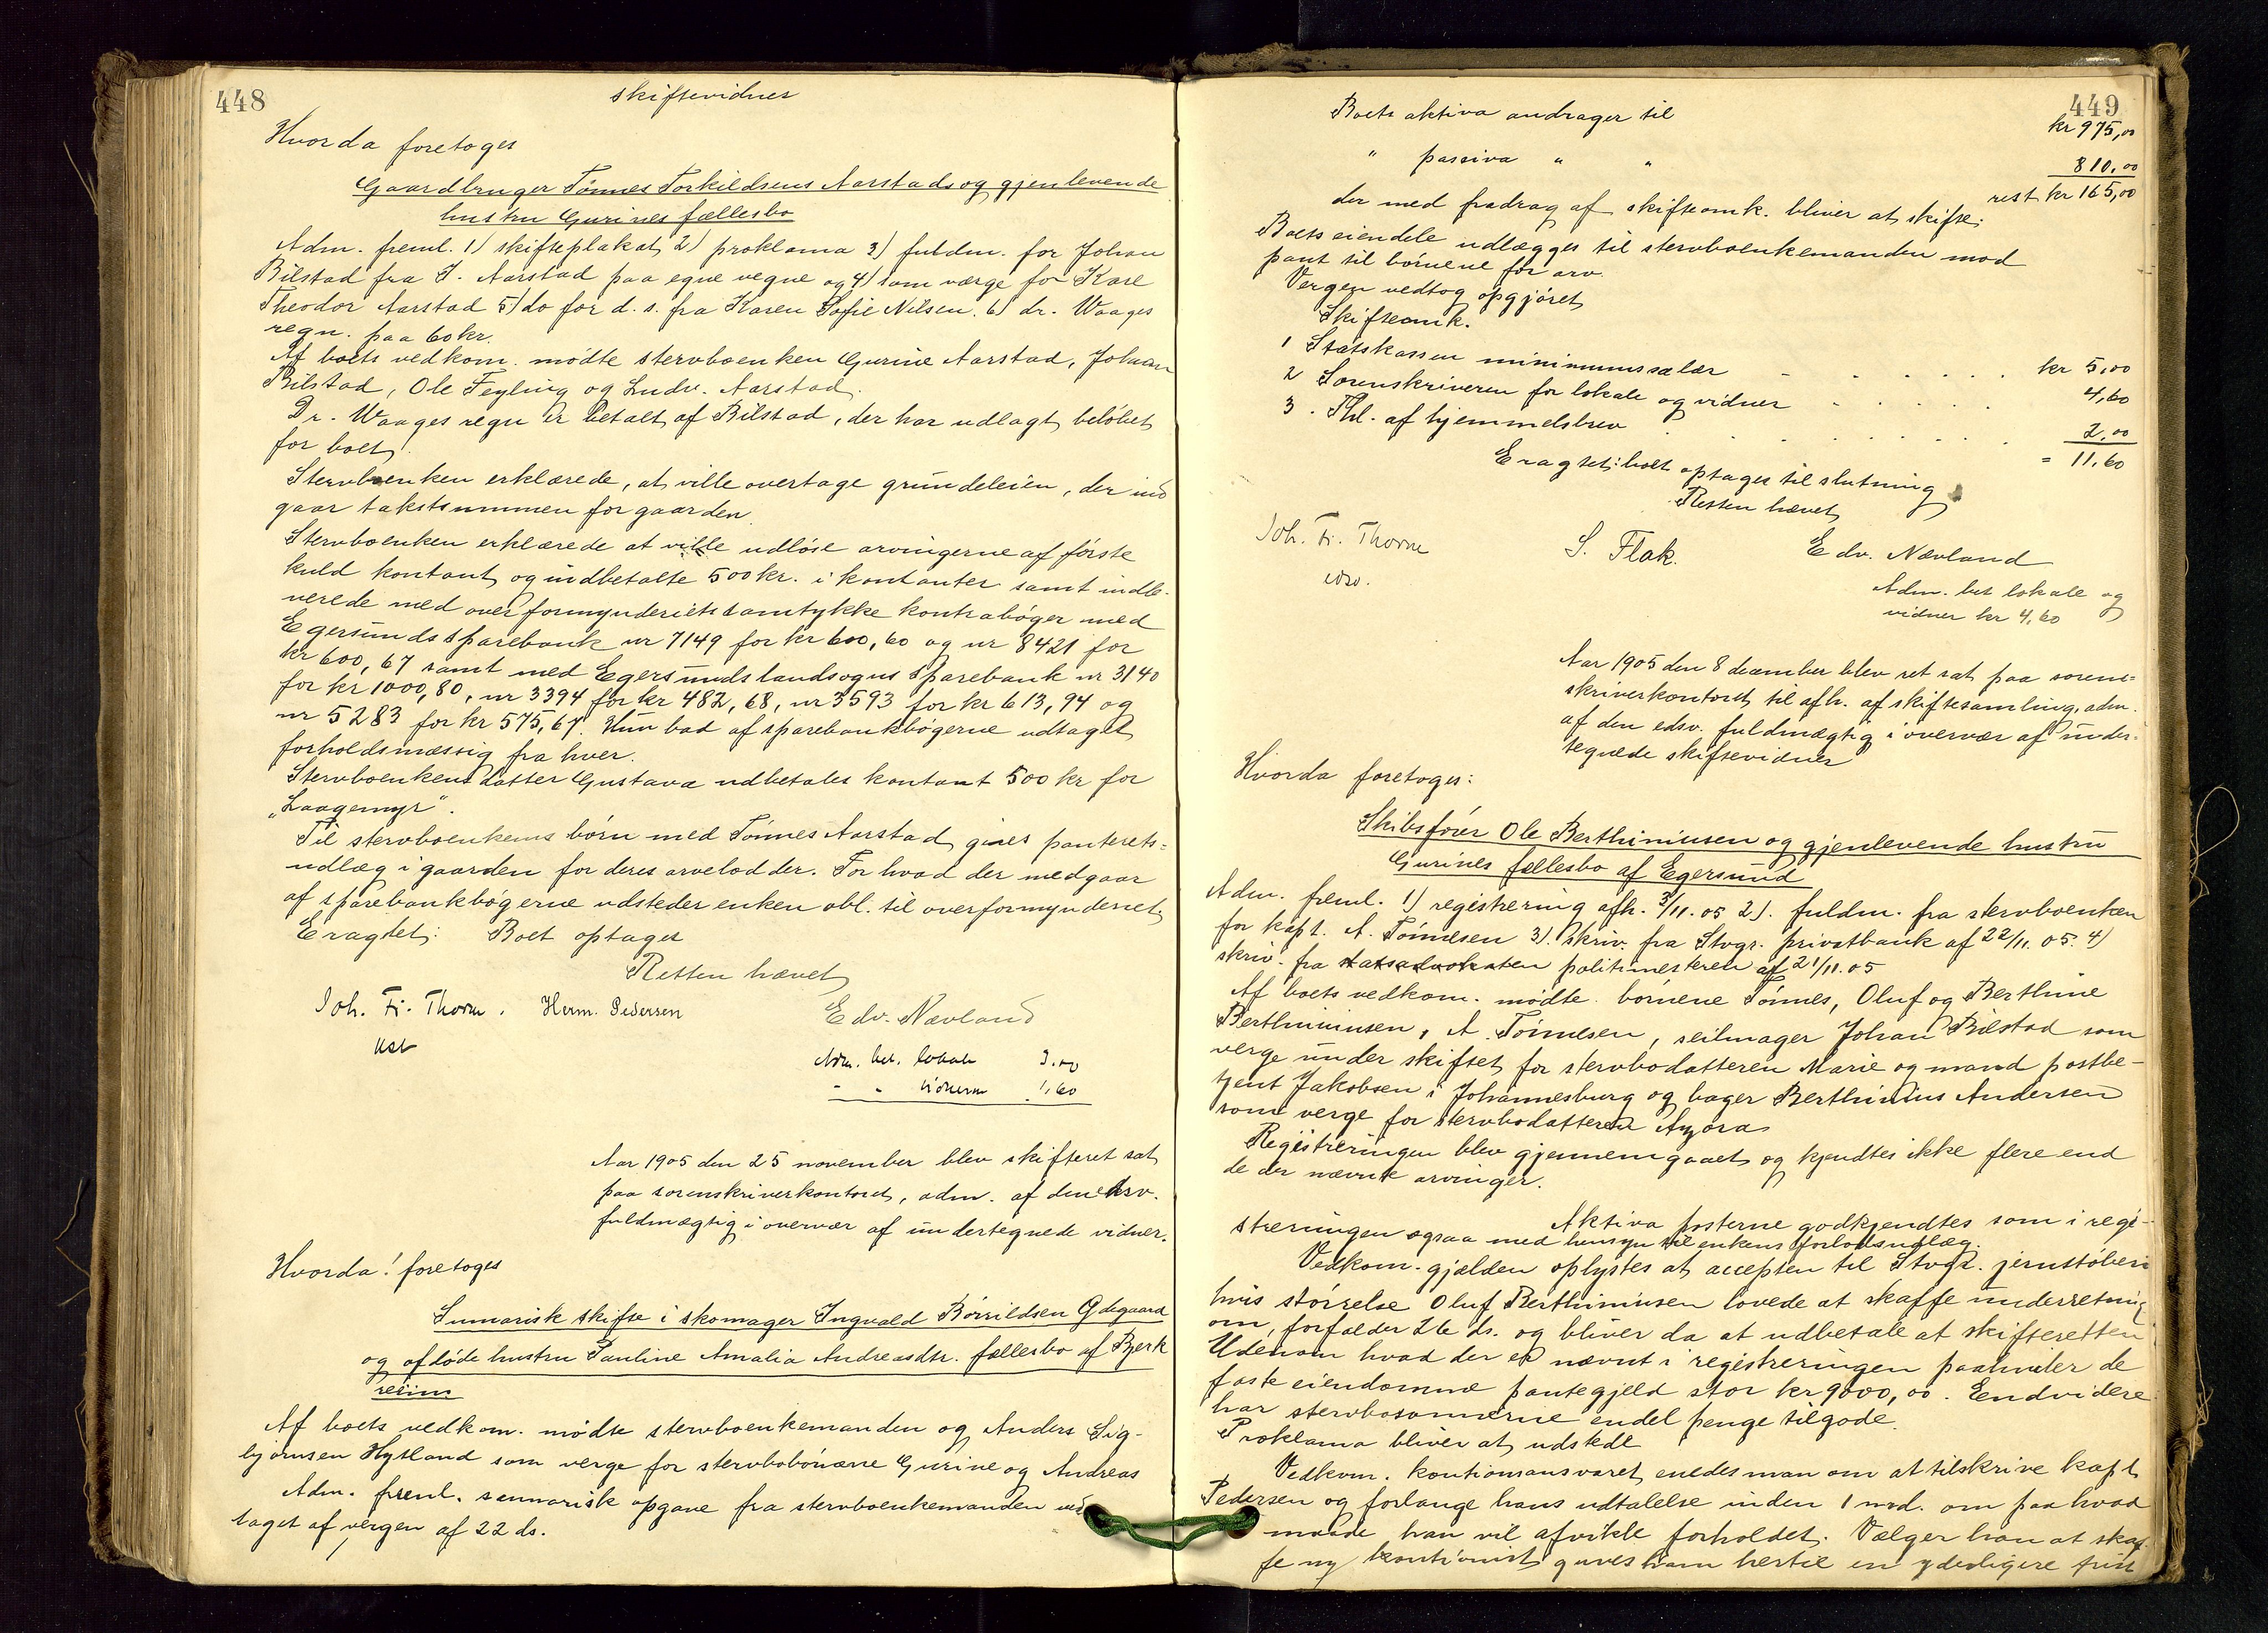 448
skiftevidner
Hvorda foretoges
Gaardbruger Tønnes Torkildsens Aarstads og gjenlevende
hustru Gurines fællesbo
Adm. freml. 1) skifteplakat 2) proklama 3) fuldm. for Johan
Bilstad fra T. Aarstad paa egne vegne og 4) som værge for Karl
Theodor Aarstad 5) do for d. s. fra Karen Sofie Nilsen. 6) dr. Waages
regn. paa 60 kr.
Af boets vedkom. mødte stervboenken Gurine Aarstad, Johan
Bilstad, Ole Feyling og Ludv. Aarstad.
Dr. Waages regn er betalt af Bilstad, der har udlagt beløbet
for boet.
Stervboenken erklærede, at ville overtage grundeleien, der ind
gaar takstsummen for gaarden.
Stervboenken erklærede at ville udløse arvingerne af første
kuld kontant og indbetalte 500 kr. i kontanter samt indle-
verede med overformynderiets samtykke kontrabøger med
Egersunds sparebank nr 7149 for kr 600,60 og nr 8421 for
kr 600,67 samt med Egersunds landsogns sparebank nr 3140
for kr 1000,80, nr 3394 for kr 482,68, nr 3593 for kr 613,94 og
nr 5283 for kr 575,67. Hun bad af sparebankbøgerne udtaget
forholdsmæssig fra hver.
Stervboenkens datter Gustava udbetales kontant 500 kr for
„Laagemyr".
Til stervboenkens børn med Tønnes Aarstad gives panterets=
udlæg i gaarden for deres arvelodder. For hvad der medgaar
af sparebankbøgerne udsteder enken obl. til overformynderiet
Eragtet: Boet optages
Retten hævet
Joh. Fr. Thorne. Herm. Pedersen Edv. Nævland
Adm. bet. lokale 3.00
" " vidnerne 1,60
Aar 1905 den 25 november blev skifteret sat
paa sorenskriverkontoret, adm. af den edsv.
fuldmægtig i overvær af undertegnede vidner.
Hvorda! foretoges
Sumarisk skifte i skomager Ingvald Børrildsen Ødegaard
og afdøde hustru Pauline Amalia Andreasdtr. fællesbo af Bjerk
reim
Af boets vedkom. mødte stervboenkemanden og Anders Sig-
bjørnsen Hytland som verge for stervbobørnene Gurine og Andreas
Adm. freml. summarisk opgave fra stervboenkemanden ved
taget af vergen af 22 ds.
449
Boets aktiva andrager til kr 975,00
" passiva " " 810,00
rest kr 165,00
der med fradrag af skifteomk. bliver at skifte.
Boets eiendele udlægges til stervboenkemanden mod
pant til børnene for arv.
Vergen vedtog opgjøret
Skifteomk.
1 Statskassen minimumssalær kr 5,00
2 Sorenskriveren for lokale og vidner 4,60
3. Thl. af hjemmelsbrev 2,00
= 11.60
Eragtet: boet optages til slutning
Retten hævet
Joh. Fr. Thorne S. Flak. Edv. Nævland
edsv.
Adm. bet lokale og
vidner kr 4,60
Aar 1905 den 8 december blev ret sat paa soren=
skriverkontoret til afh. af skiftesamling, adm.
af den edsv. fuldmægtig i overvær af under-
tegnede skiftevidner
Hvorda foretoges:
Skibsfører Ole Berthiniusen og gjenlevende hustru
Gurines fællesbo af Egersund
Adm. freml. 1) registrering afh. 3/11.05 2). fuldm. fra stervboenken
for kapt. A. Tønnesen 3). skriv. fra Stvgr. privatbank af 22/11.05. 4)
skriv. fra statsadvokaten politimesteren af 21/11.05
Af boets vedkom. mødte børnene Tønnes, Oluf og Berthine
Berthiniusen, A. Tønnesen, seilmager Johan Bilstad som
verge under skiftet for stervbodatteren Marie og mand postbe-
tjent Jakobsen i Johannesburg og bager Berthinius Andersen
som verge for stervbodatteren
Registreringen blev gjennemgaaet og kjendtes ikke flere end
de der nævnte arvinger.
Aktiva posterne godkjendtes som i regi-
streringen ogsaa med hensyn til enkens forlodsudlæg.
Vedkom. gjælden oplystes at accepten til Stvgr. jernstøberi
hvis størrelse Oluf Berthiniusen lovede at skaffe underretning
om, forfalder 26 ds. og bliver da at udbetale at skifteretten
Udenom hvad der er nævnt i registreringen paahviler de
faste eiendomme pantegjeld stor kr 9000,00. Eendvidere
har stervbosønnerne endel penge tilgode.
Proklama bliver at udstede
Vedkom. kautionsansvaret enedes man om at tilskrive kapt
Pedersen og forlange hans udtalelse inden 1 md. om paa hvad
maade han vil afvikle forholdet. Vælger han at skaf
fe ny kautionist gives ham hertil en yderligere frist